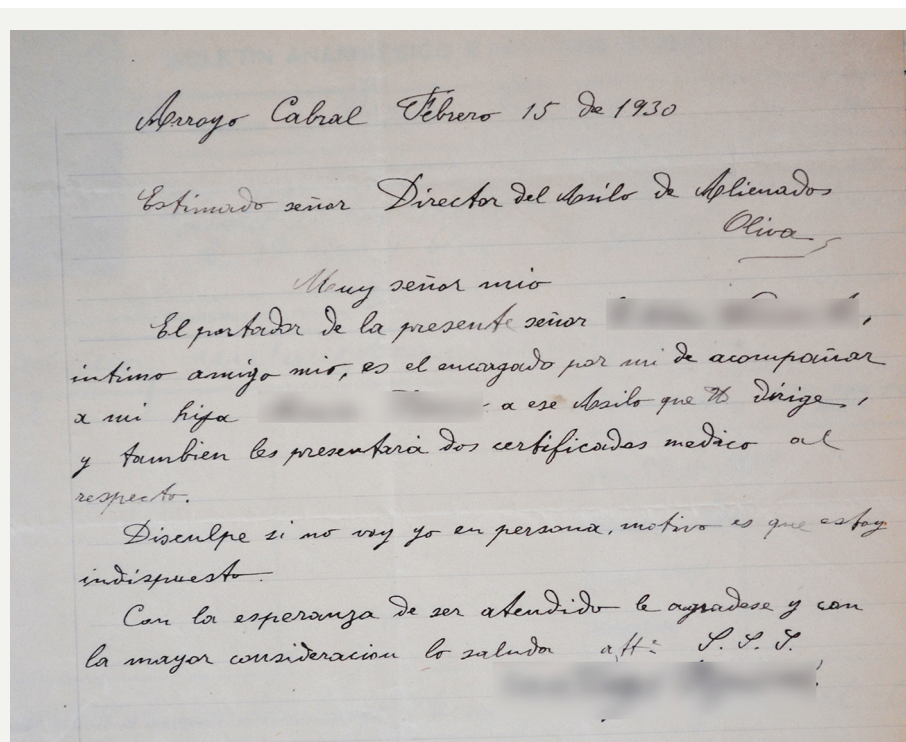 Arroyo Cabral Febrero 15 de 1930
Estimado señor Director del Asilo de Alienados
Oliva
Muy señor mio
El portador de la presente señor
intimo amigo mio, es el encargado por mi de acompañar
a mi hija a ese Asilo que Ud dirige,
y tambien les presentará dos certificados medico al
respecto.
Disculpe si no voy yo en persona, motivo es que estoy
indispuesto.
Con la esperanza de ser atendido le agradese y con
la mayor consideracion lo saluda att: S. S. S.